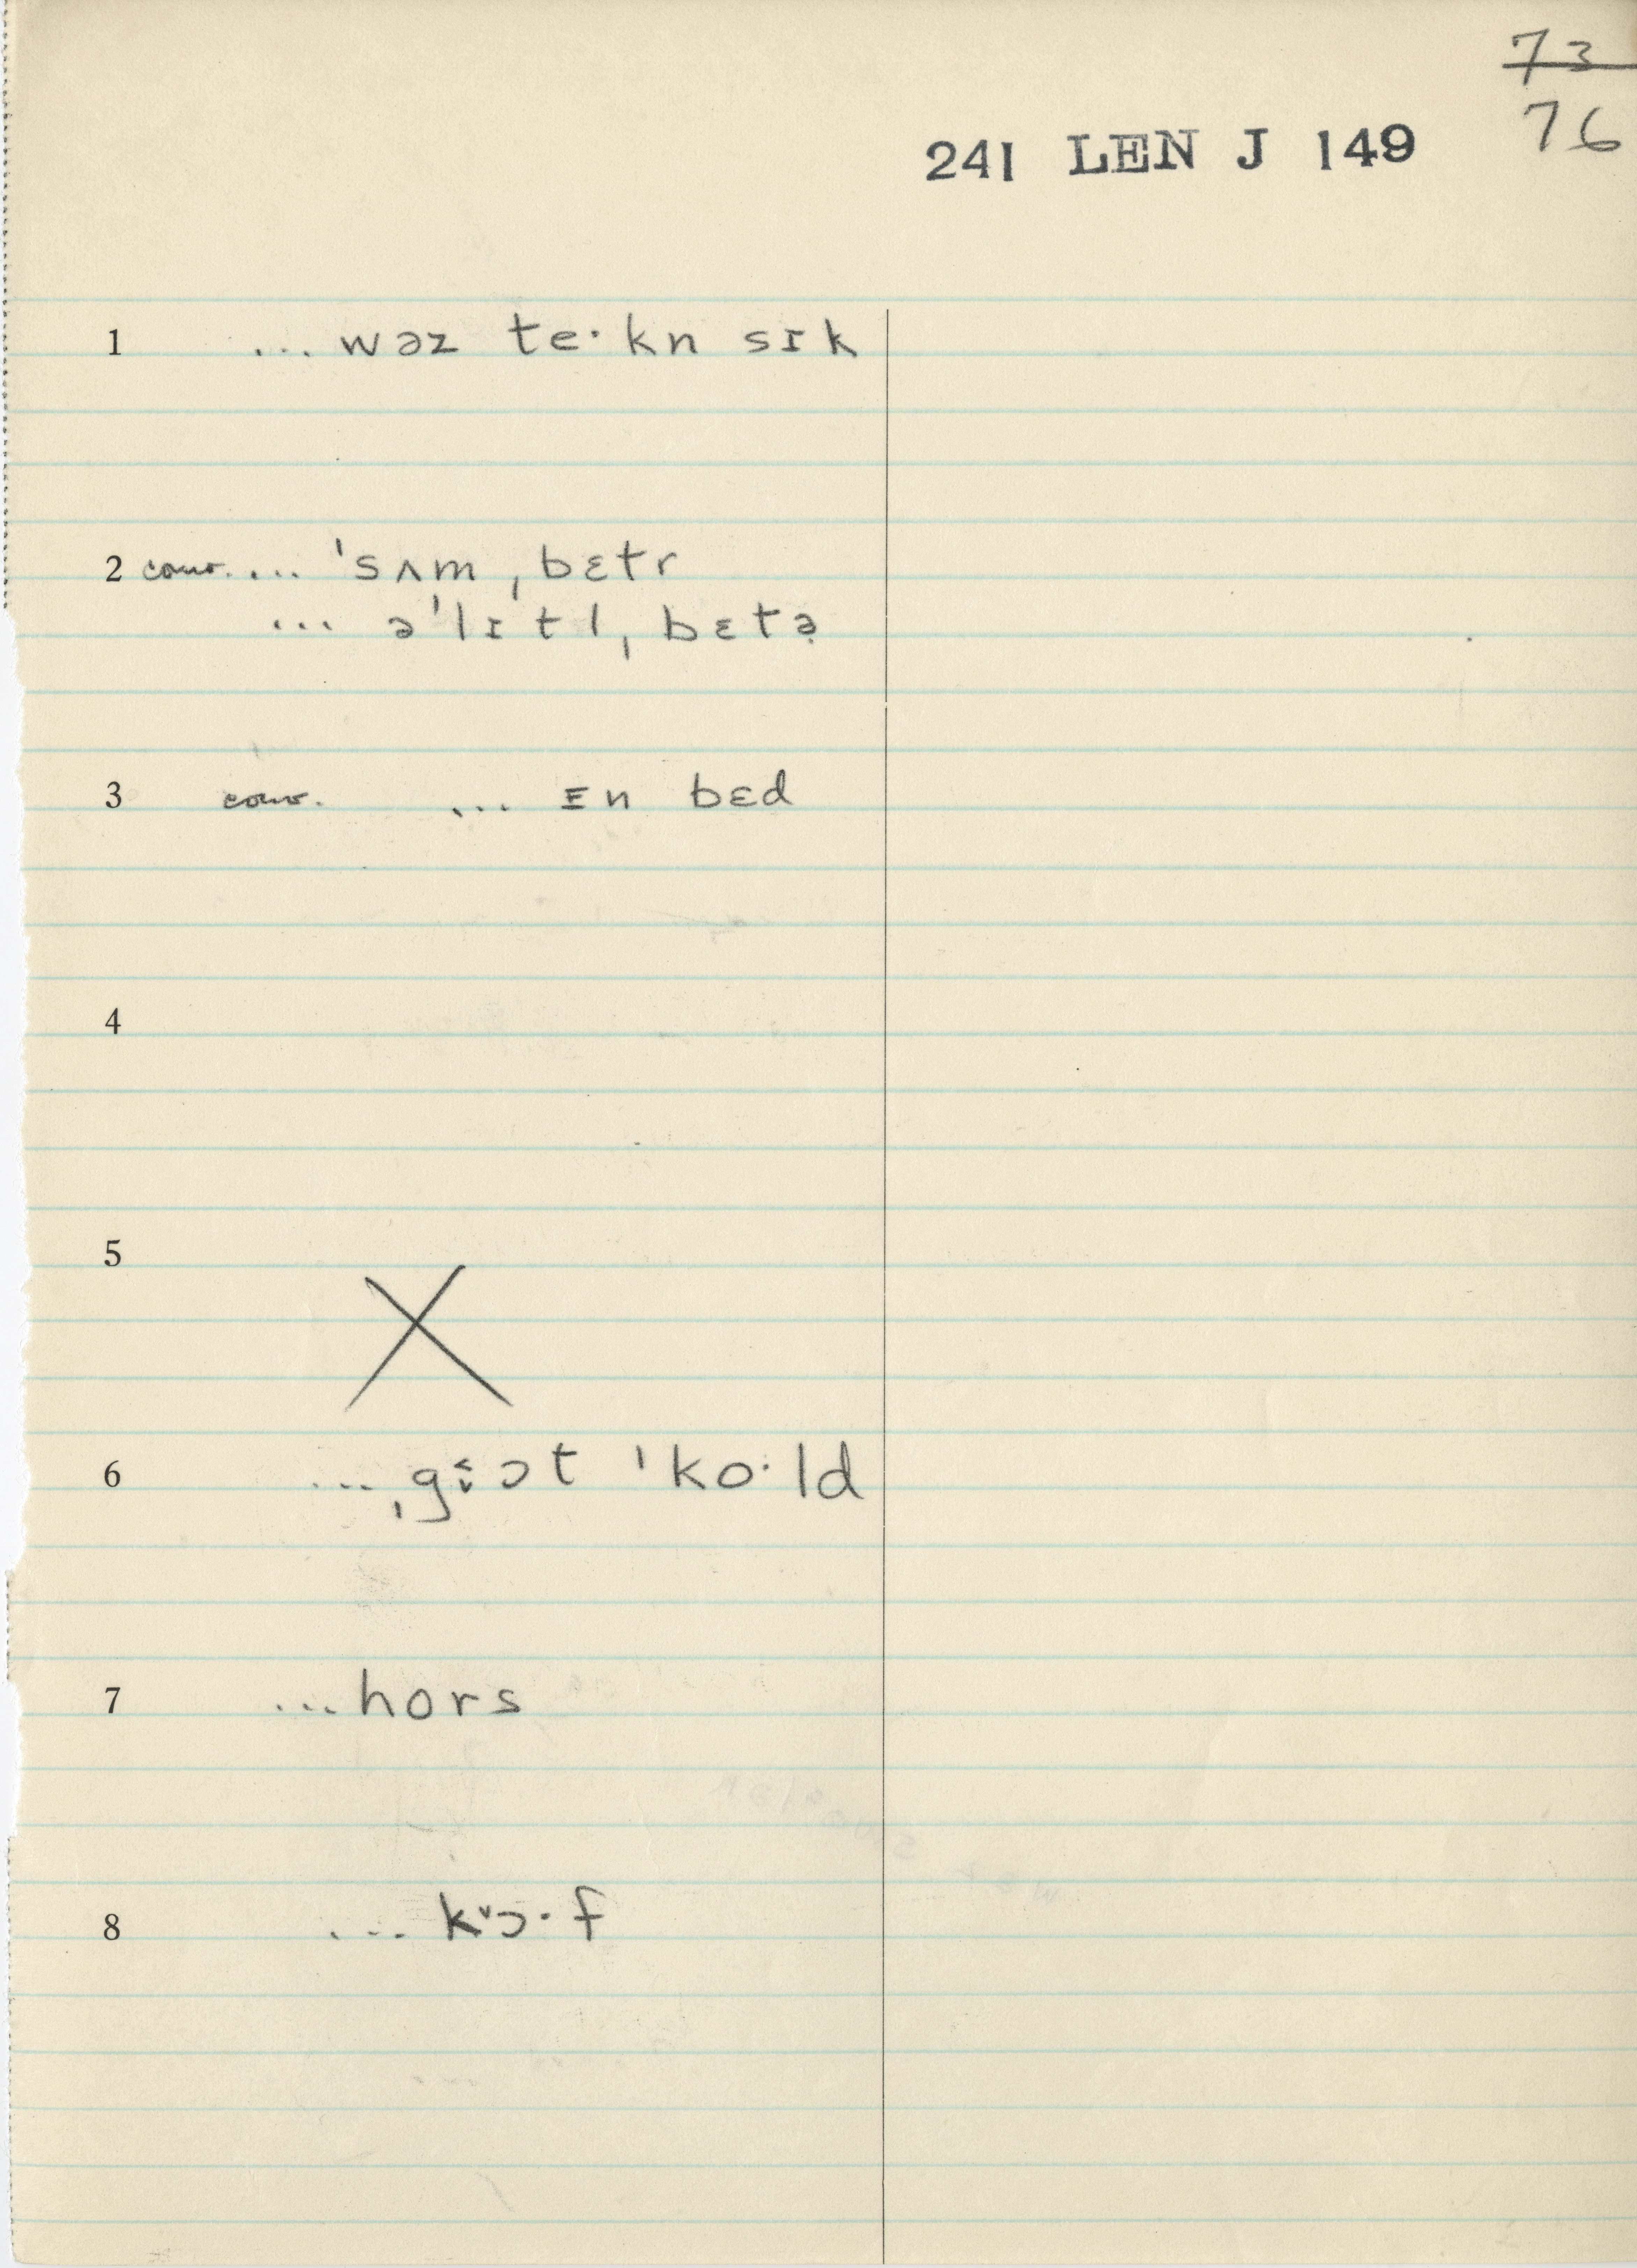 ~~73~~
241 LEN J 149 76
1 ... wəz te·kn sɪk
2 conv. ... ˈsʌm ˌbɛtr
... əˈlɪtl ˌbɛtə̣
3 conv. ... ɪn bɛd
4
5 X
6 ... ˌgɔt ˈko·ld
7 ... hors
8 ... kɔ·f